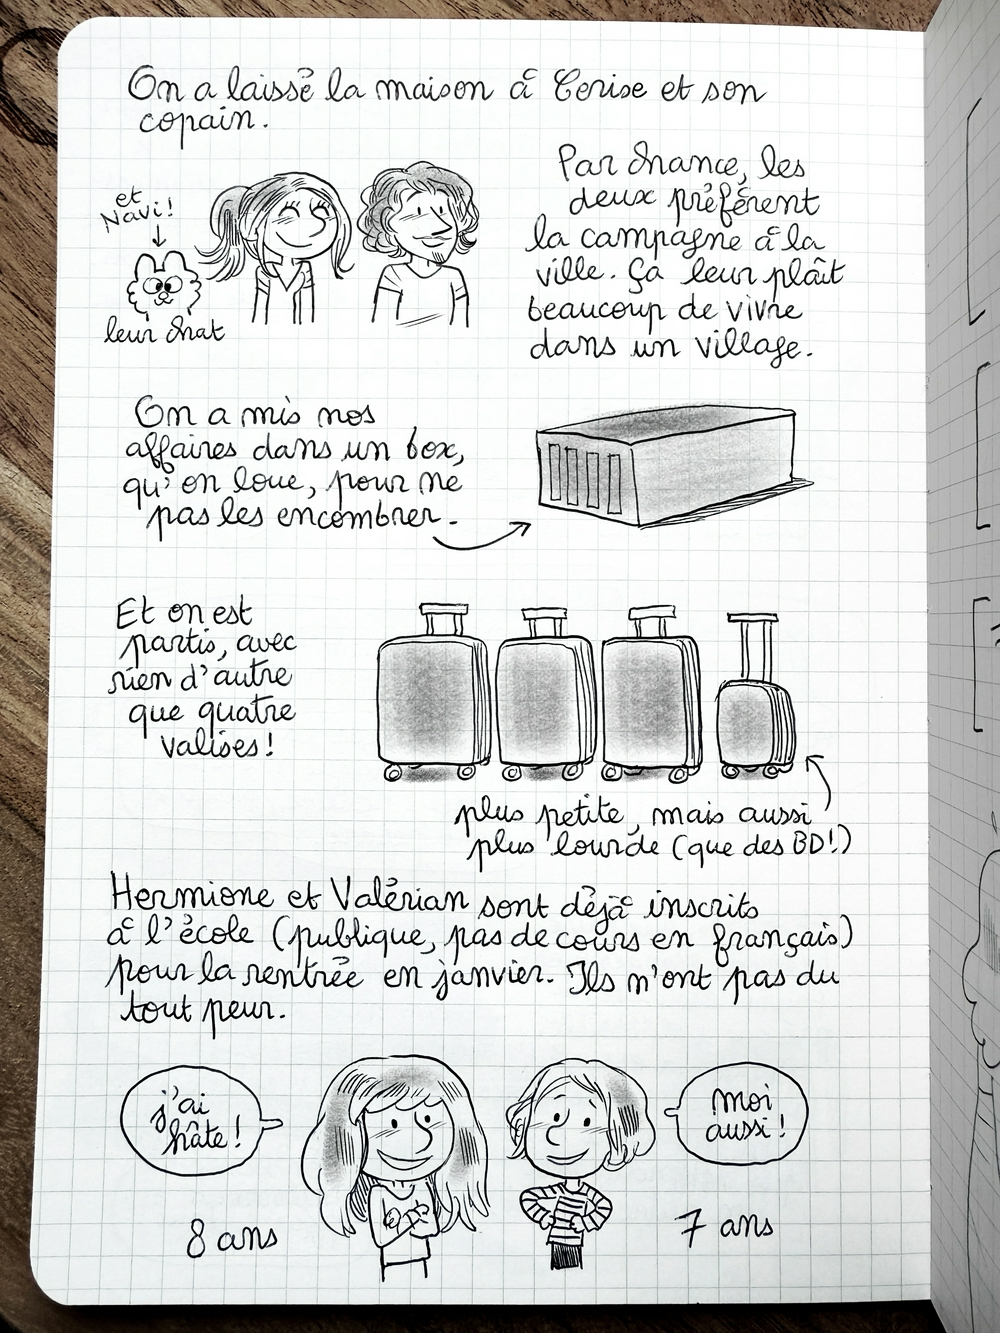 On a laissé la maison à Cerise et son
copain.
et
Navi!
leur chat
Par chance, les
deux préfèrent
la campagne à la
ville. Ça leur plaît
beaucoup de vivre
dans un village.
On a mis nos
affaires dans un box,
qu'on loue, pour ne
pas les encombrer.
Et on est
partis, avec
rien d'autre
que quatre
valises!
plus petite, mais aussi
plus lourde (que des BD!)
Hermione et Valérian sont déjà inscrits
à l'école (publique, pas de cours en français)
pour la rentrée en janvier. Ils n'ont pas du
tout peur.
j'ai
hâte!
moi
aussi!
8 ans
7 ans